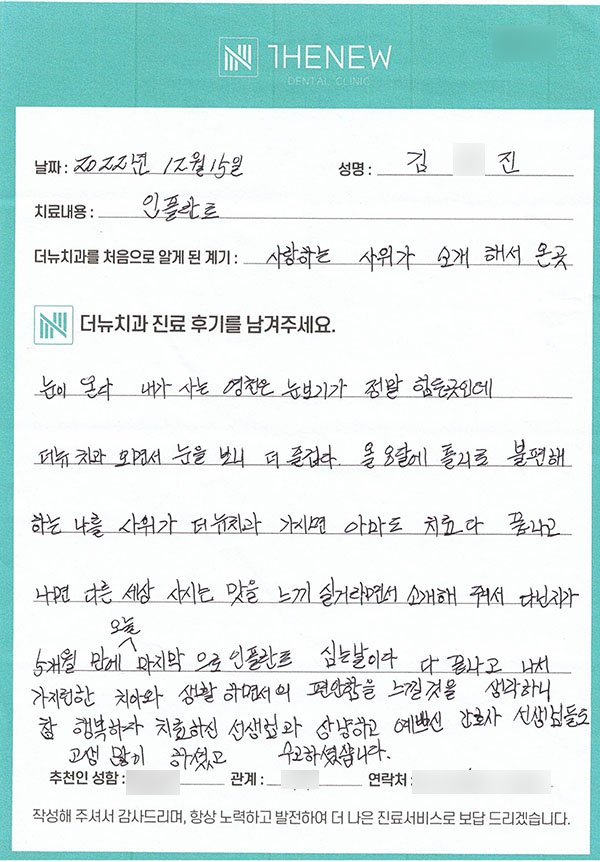 THENEW
DENTAL CLINIC
날짜 : 2022년 12월 15일 성명 : 김 진
치료내용 : 인플란트
더뉴치과를 처음으로 알게 된 계기 : 사랑하는 사위가 소개 해서 온곳
더뉴치과 진료 후기를 남겨주세요.
눈이 온다 내가 사는 영천은 눈보기가 정말 힘든곳인데
더뉴치과 오면서 눈을 보니 더 즐겁다. 올 8월에 틀니로 불편해
하는 나를 사위가 더뉴치과 가시면 아마도 치료 다 끝나고
나면 다른 세상 사시는 맛을 느끼 실거라면서 소개해 줘서 다닌지가
오늘
5개월 만에 마지막 으로 인플란트 심는날이다 다 끝나고 나서
가지런한 치아와 생활 하면서의 편안함을 느낄것을 생각하니
참 행복하다 치료하신 선생님과 상냥하고 예쁘신 간호사 선생님들도
고생 많이 하셨고 수고하셨습니다.
추천인 성함 : 관계 : 연락처 :
작성해 주셔서 감사드리며, 항상 노력하고 발전하여 더 나은 진료서비스로 보답 드리겠습니다.